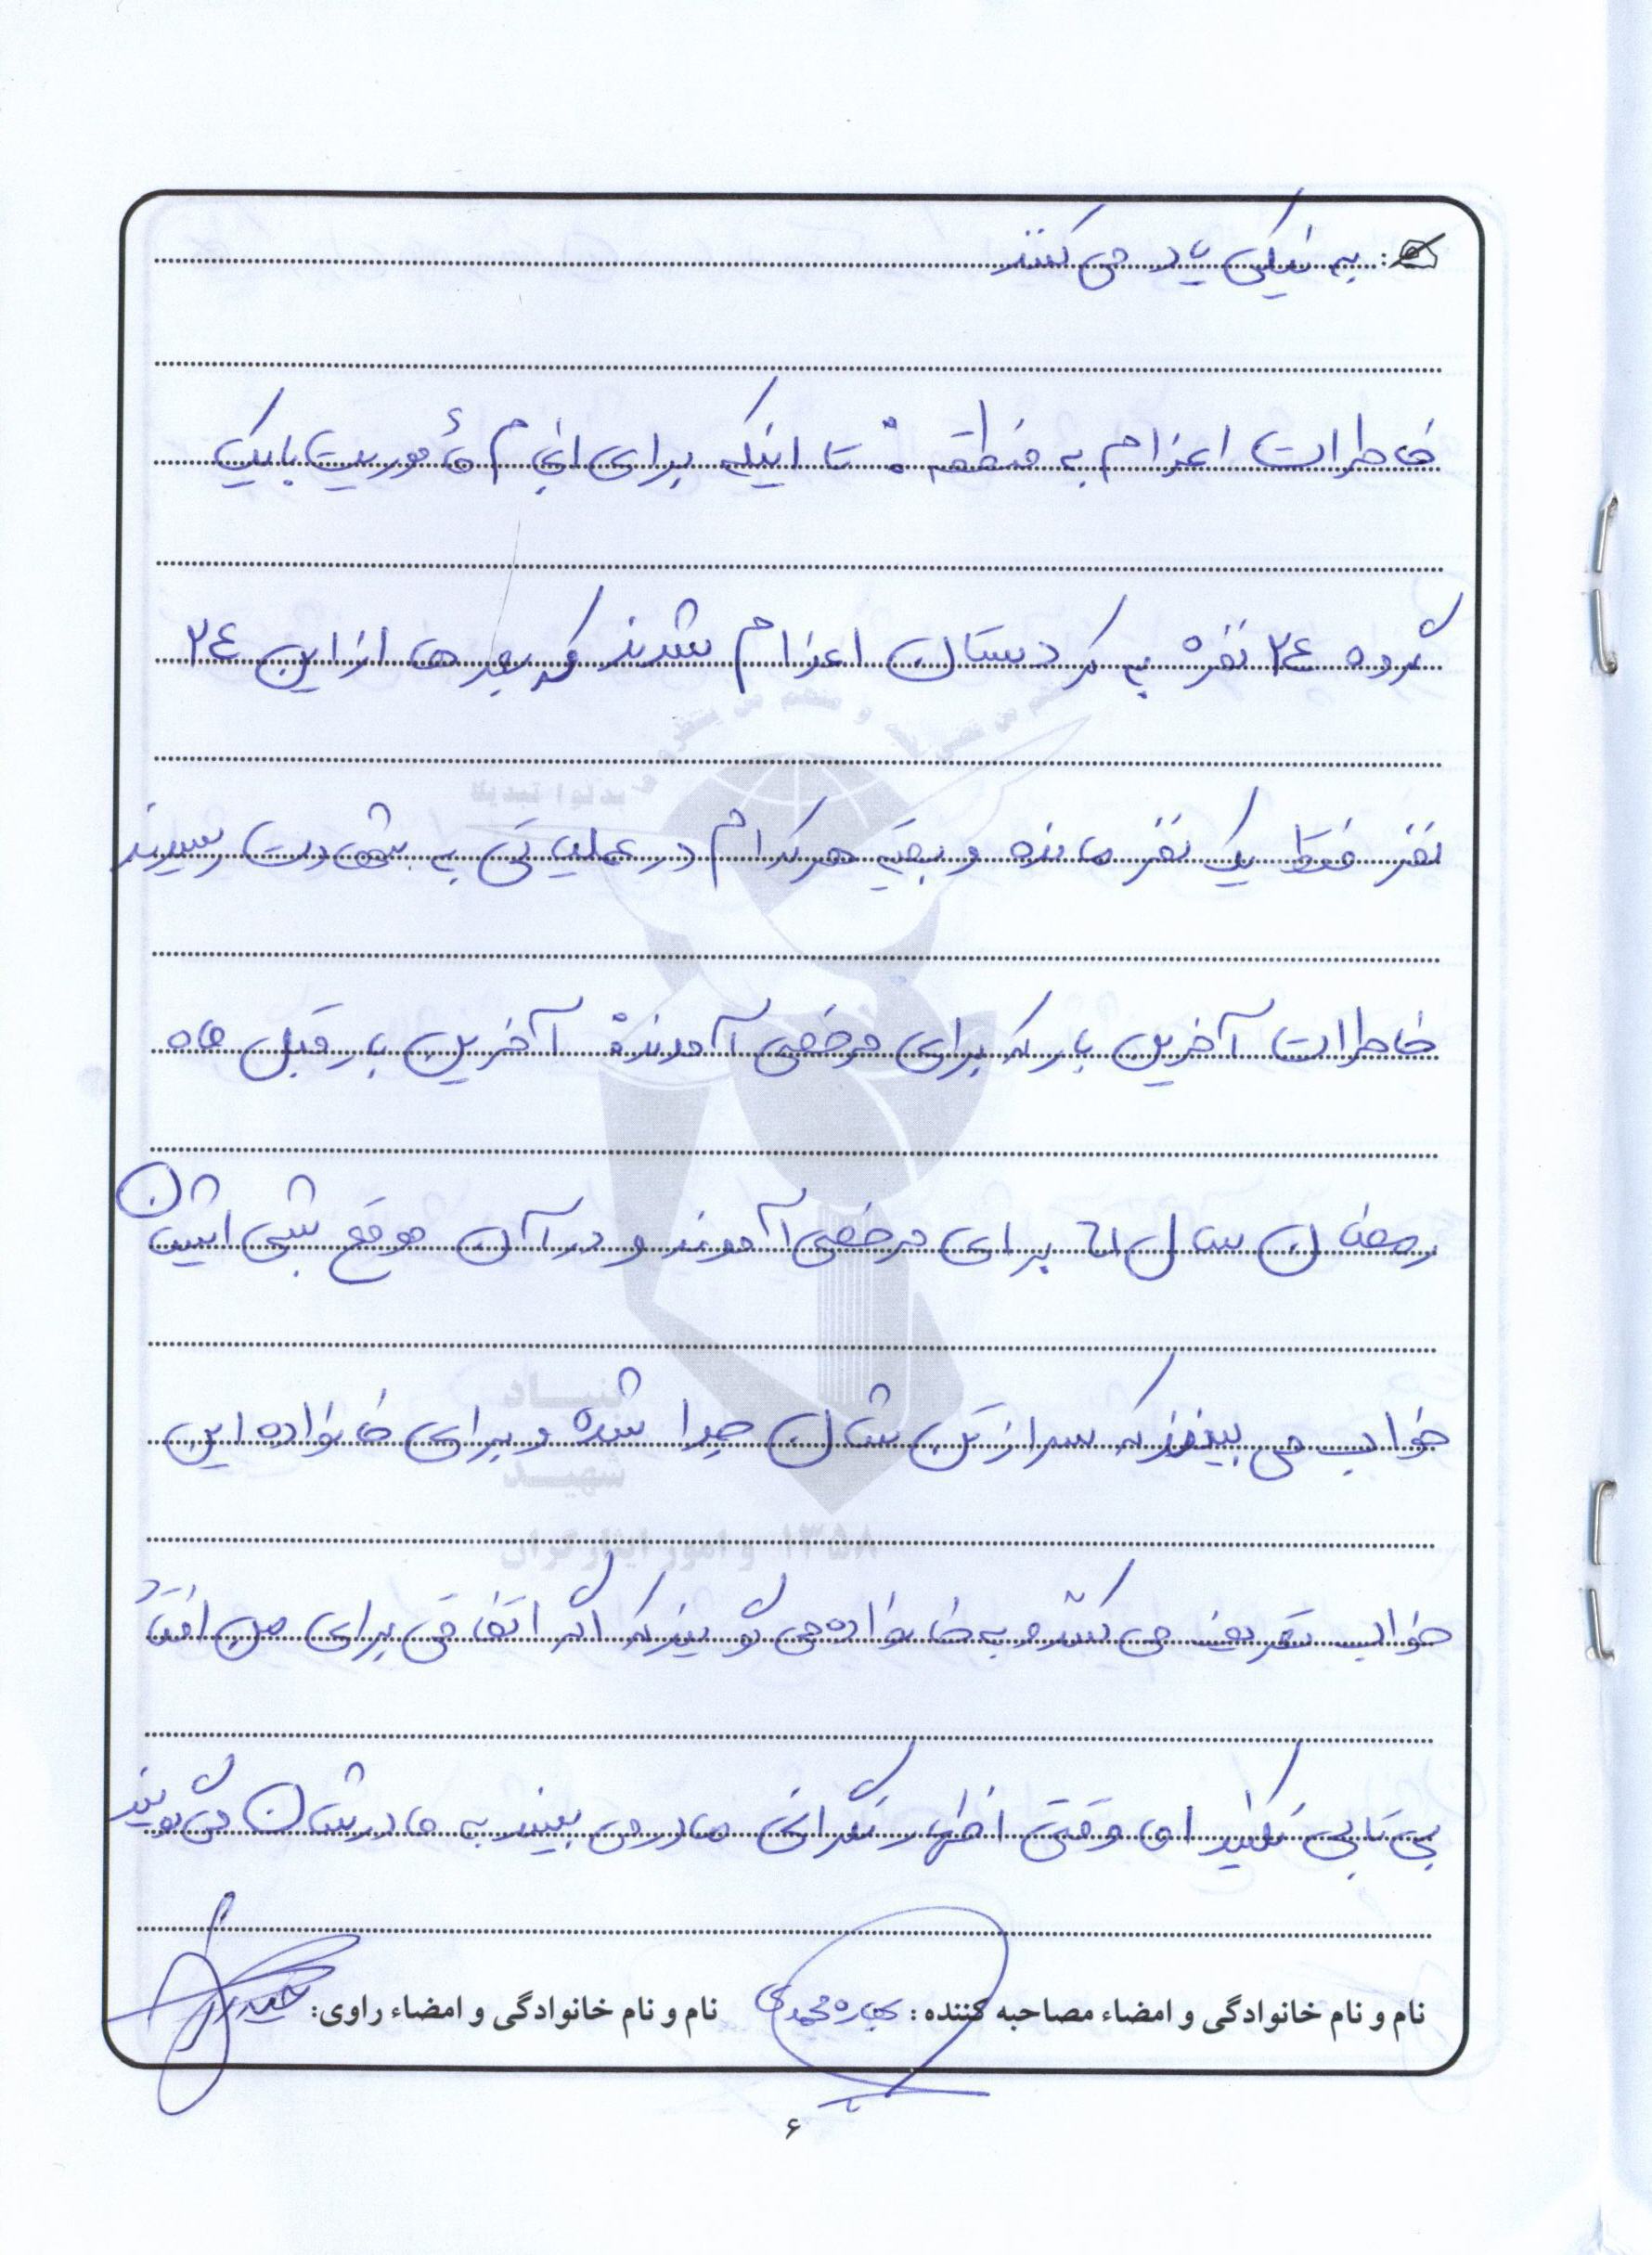 به نیکی یاد می کنند
خاطرات اعزام به منطقه : تا اینکه برای انجام مأموریت با یک
گروه ۲۴ نفره به کردستان اعزام شدند که بعدها از این ۲۴
نفر فقط یک نفر مانده و بقیه هرکدام در عملیاتی به شهادت رسیدند
خاطرات آخرین بار که برای مرخصی آمدند: آخرین بار قبل ماه
رمضان سال ۶۱ برای مرخصی آمدند و در آن موقع شبی ایشان
خواب می بینند که سر از تن شان جدا شده و برای خانواده این
خواب تعریف می کنند و به خانواده می گویند که اگر اتفاقی برای من افتاد
بی تابی نکنید اما وقتی اظهار نگرانی مادر می بینند به مادرشان می گویند
نام و نام خانوادگی و امضاء مصاحبه کننده : محمدی نام و نام خانوادگی و امضاء راوی:
بنیاد
شهید
و امور ایثارگران ۱۳۵۸
۶